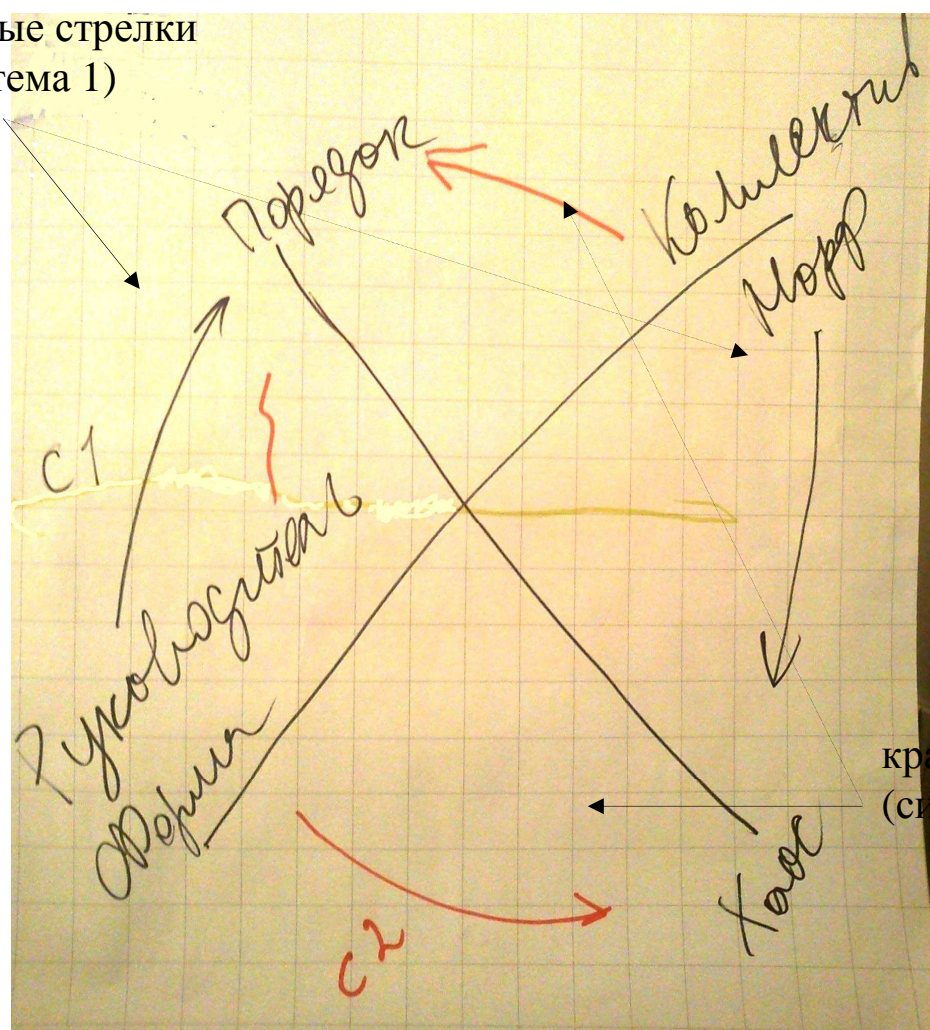 ые стрелки
тема 1)
Порядок
Коллектив
Морф
С1
Руководитель
Форма
кра
(си
Хаос
С2